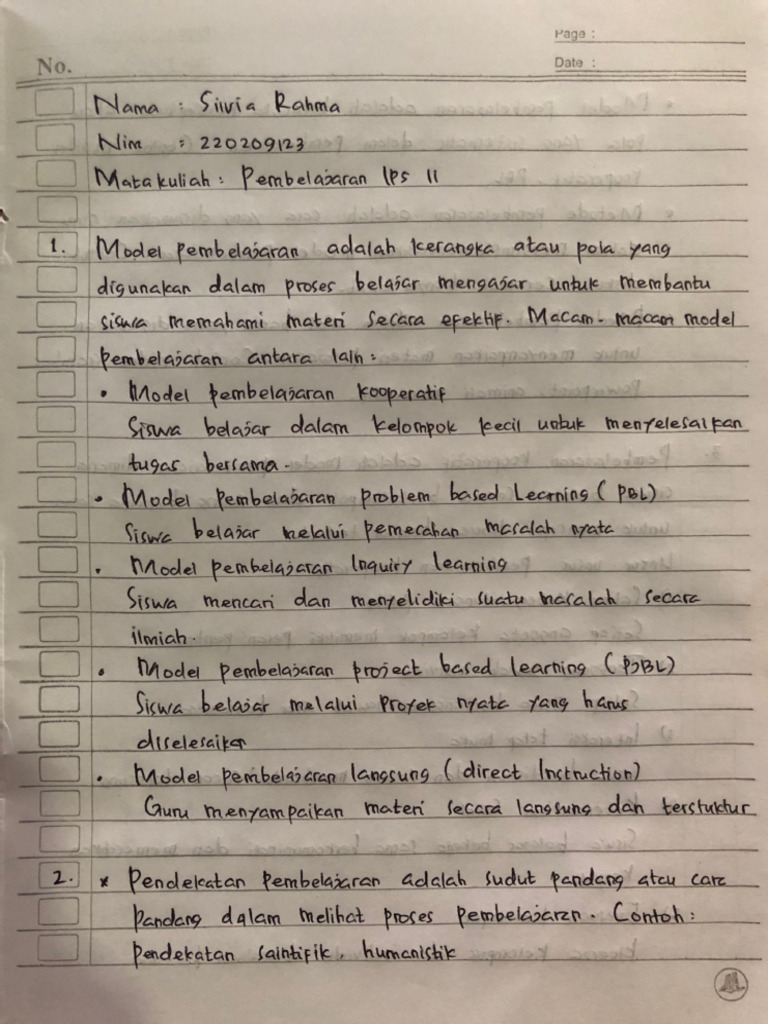 Page :
No.
Date :
Nama : Silvia Rahma
Nim : 220209123
Matakuliah : Pembelajaran IPS II
1. Model pembelajaran adalah kerangka atau pola yang
digunakan dalam proses belajar mengajar untuk membantu
siswa memahami materi secara efektif. Macam-macam model
pembelajaran antara lain :
• Model pembelajaran kooperatif
Siswa belajar dalam kelompok kecil untuk menyelesaikan
tugas bersama.
• Model pembelajaran problem based Learning (PBL)
Siswa belajar melalui pemecahan masalah nyata
• Model pembelajaran Inquiry learning
Siswa mencari dan menyelidiki suatu masalah secara
ilmiah.
• Model pembelajaran project based learning (PjBL)
Siswa belajar melalui Proyek nyata yang harus
diselesaikan
• Model pembelajaran langsung (direct Instruction)
Guru menyampaikan materi secara langsung dan terstuktur
2. * Pendekatan pembelajaran adalah sudut pandang atau cara
pandang dalam melihat proses pembelajaran. Contoh :
pendekatan saintifik, humanistik